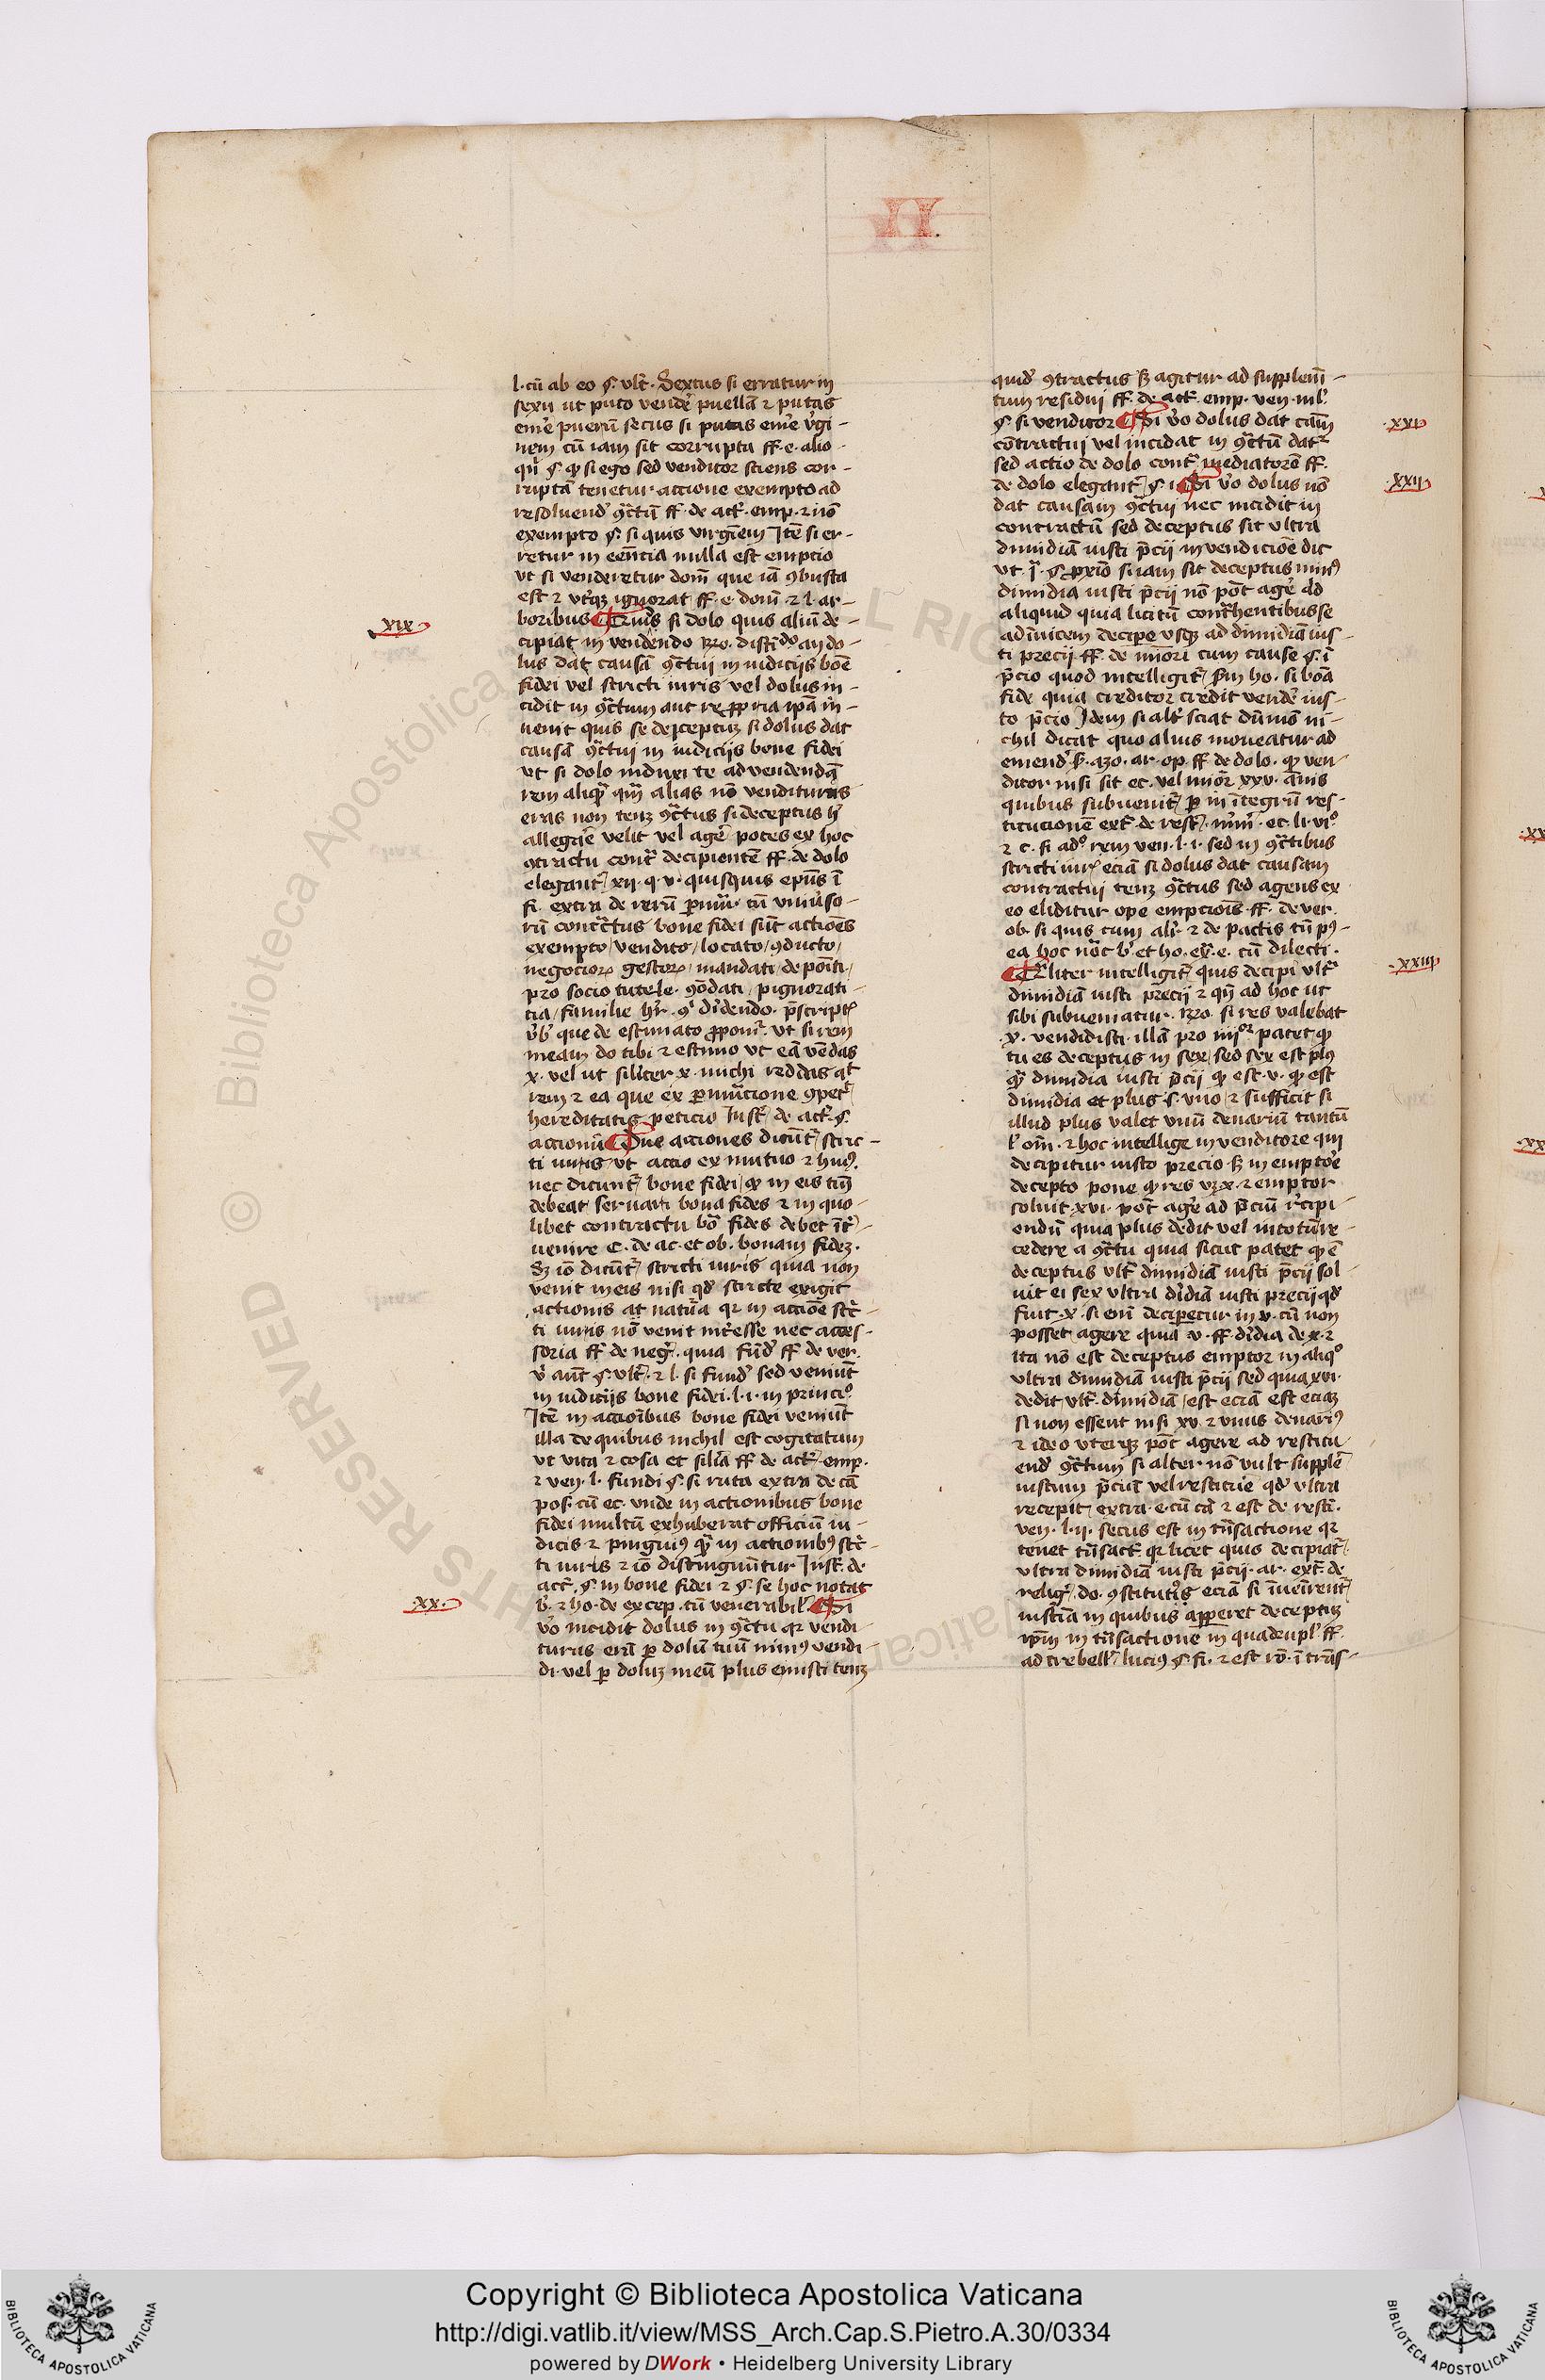 II
l. cū ab eo ꝭ. vlt̄. Sextus si erratur in
sexu ut puto vendē puellā ⁊ putas
emē puerū secus si putas emē v̄gi-
nem cū iam sit corrupta ff. e. alio
q̄n ꝭ. ꝙ si ego sed venditor sciens cor-
ruptā tenetur accione exempto ad
resoluend̄ ꝯctū ff. de act̄. emp. ⁊ nō
exempto ꝭ. si quis virginem Itē si er-
retur in eēncia nulla est emptio
vt si venderetur dom̄ que iā ꝯbusta
est ⁊ vtq̄ꝫ ignorat ff. e. dom̄ ⁊ l. ar-
xix
boribus si dolo quis aliū de-
cipiat in vendendo Rō. distīdo an do-
lus dat causā ꝯctui in iudicijs bōe
fidei vel stricti iuris vel dolus in-
cidit in ꝯctum aut re ipā in-
uenit quis se deceptuꝫ si dolus dat
causā ꝯctui in iudicijs bone fidei
vt si dolo induxi te ad vendendā
rem aliq̄ q̄m alias nō venditurus
eras non tenꝫ ꝯctus si deceptus h̄
allegāre velit vel agē potes ex hoc
ꝯtractu cont̄ decipientē ff. de dolo
elegant̄ xii. q. v. quisquis ep̄us ī
fi. extra de rerū ꝑmu. cū vniūso-
rū contc̄tus bone fidei sūt actiōes
exempto / vendito / locato / ꝯducto /
negocioꝝ gestoꝝ / mandati / depōiti /
pro socio tutele. ꝯōdati / pignorati-
tia / familie h̄r. ꝯī dīdendo. p̄scriptꝭ
v̄b̄ que de estimato ꝓponīt. vt si rem
meam do tibi ⁊ estimo vt eā vēdas
x. vel ut silīter x. michi reddas at̄
rem ⁊ ea que ex ꝑmutacione ꝯpet̄
hereditatis peticio Inst̄. de act̄. ꝭ.
accionū Due acciones dicūt̄ / stric-
ti iuris vt actio ex mutuo ⁊ hui9.
nec dicunt̄ bone fidei / ꝙ in eis tm̄
debeat seruari bona fides ⁊ in quo-
libet contractu bō fides debet īt̄-
uenire C. de ac. et ob. bonam fideꝫ.
Sꝫ iō dicūt̄ stricti iuris quia non
venit in eis nisi qd̄ stricte exigit
actionis at natūa qr in acciōe stc̄-
ti iuris nō venit int̄esse nec acces-
soria ff. de neḡ. quia fūd̄ ff. de ver.
v̄ aūt ꝭ. vlt̄. ⁊ l. si fund̄ sed veniūt
in iudicijs bone fidei. l. i. in princiº.
Itē in accionībus bone fidei veniūt
illa de quibus nichil est cogitatum
vt vita ⁊ cosa et silīa ff. de act̄. emp.
⁊ ven. l. fundi ꝭ. si ruta extra de cā
pos. cū ec. vnde in actionibus bone
fidei multū exhuberat officiū iu-
dicis ⁊ pingui9 q̄ in actionib9 stc̄-
ti iuris ⁊ iō distinguūtur Inst̄. de
act̄. ꝭ. in bone fidei ⁊ ꝭ. se hoc notat
xx.
b̄. ⁊ ho. de excep. cū venerabil̄. Si
v̄o incidit dolus in ꝯctu qr vendi-
turus erā ꝑ dolū tuū min9 vendi-
di vel ꝑ doluꝫ meū plus emisti tenꝫ
quid̄ ꝯtractus sꝫ agitur ad supplem̄-
tum residui ff. de act̄. emp. ven. iul̄.
xxi
ꝭ. si venditor Si v̄o dolus dat cām
cōtractui vel incidat in ꝯctū dat̄
sed actio de dolo cont̄ mediatorē ff.
xxii
de dolo elegant̄ ꝭ. i. Si v̄o dolus nō
dat causam ꝯctui nec incidit in
contractū sed deceptus sit vltra
dimidiā iusti p̄cii in vendiciōe dic
vt ī. ꝭ. ꝓxīo si iam sit deceptus min9
dimidia iusti p̄cii nō pōt agē ad
aliquid quia licitū cont̄hentibus se
adīuicem decipe vsqꝫ ad dimidiā ius-
ti precii ff. de mīori cum cause ꝭ. ī
p̄cio quod intelligit̄ s̄m ho. si bōa
fide quia creditor credit vendē ius-
to p̄cio Idem si alt̄ sciat dūmō ni-
chil dicat quo alius moueatur ad
emend̄ s̄. aʒo. ar. op. ff. de dolo. ꝙ ven-
ditor nisi sit ec. vel mīor xxv. ānis
quibus subuenit̄ ꝑ in ītegrū res-
titucionē ext̄. de rest̄. ec. li. viº.
⁊ c. si adº rem ven. l. i. sed in ꝯctibus
stricti iurꝭ eciā si dolus dat causam
contractui tenꝫ ꝯctus sed agens ex
eo eliditur ope empcionis ff. de ver.
ob. si quis cum alit̄. ⁊ de pactis cū p9-
ea hoc nōt b̄ et ho. ex̄. e. cū dilecti.
xxiii
Qualiter intelligit̄ quis decipi vlt̄
dimidiā iusti precii ⁊ qn̄ ad hoc ut
sibi subueniatur. Rō. si res valebat
x. vendidisti illā pro iiijor patet ꝙ
tu es deceptus in sex / sed sex est pl9
q̄ dimidia iusti p̄cii ꝙ est. v. ꝙ est
dimidia et plus s. vno / ⁊ sufficit si
illud plus valet vnū denariū tantū
l̄ om̄. ⁊ hoc intellige in venditore qui
decipitur iusto precio sꝫ in emptōe
decepto pone ꝙ res vꝫ x. ⁊ emptor
soluit xvi. pōt agē ad p̄ciū r̄cipi-
endū quia plus dedit vel in totū re-
cedere a ꝯctu quia sicut patet ꝙ ē
deceptus vlt̄ dimidiā iusti p̄cii sol-
uit ei sex vltra dīdiā iusti precii qd̄
fuit. x. si eni deciperetur in v. cū non
posset agere quia v. ff. dīdia de x. ⁊
ita nō est deceptus emptor in aliqº
vltra dimidiā iusti p̄cii sed quia xvi.
dedit vlt̄ dīmidiā / est eciā est eciaꝫ
si non essent nisi xv ⁊ vnus denari9
⁊ ideo vterqꝫ pōt agere ad restitu-
end̄ ꝯctum si alter nō vult supplē
iustum p̄ciū vel restituē qd̄ vltra
recepit extra. e. cū cā ⁊ est de resci.
ven. l. ii. secus est in tn̄sactione qr
tenet tn̄sact̄ qr licet quis decipiat̄
vltra dimidiā iusti p̄cii. ar. ext̄. de
reliḡ. do. ꝯstitutus eciā si īuenirent̄
iustr̄a in quibus apperet deceptuꝫ
ip̄m in tn̄sactione in quadrupl̄ ff.
ad trebell̄ / luci9 ꝭ. fi. ⁊ est rō. ī trās-
Copyright © Biblioteca Apostolica Vaticana
http://digi.vatlib.it/view/MSS_Arch.Cap.S.Pietro.A.30/0334
powered by DWork • Heidelberg University Library